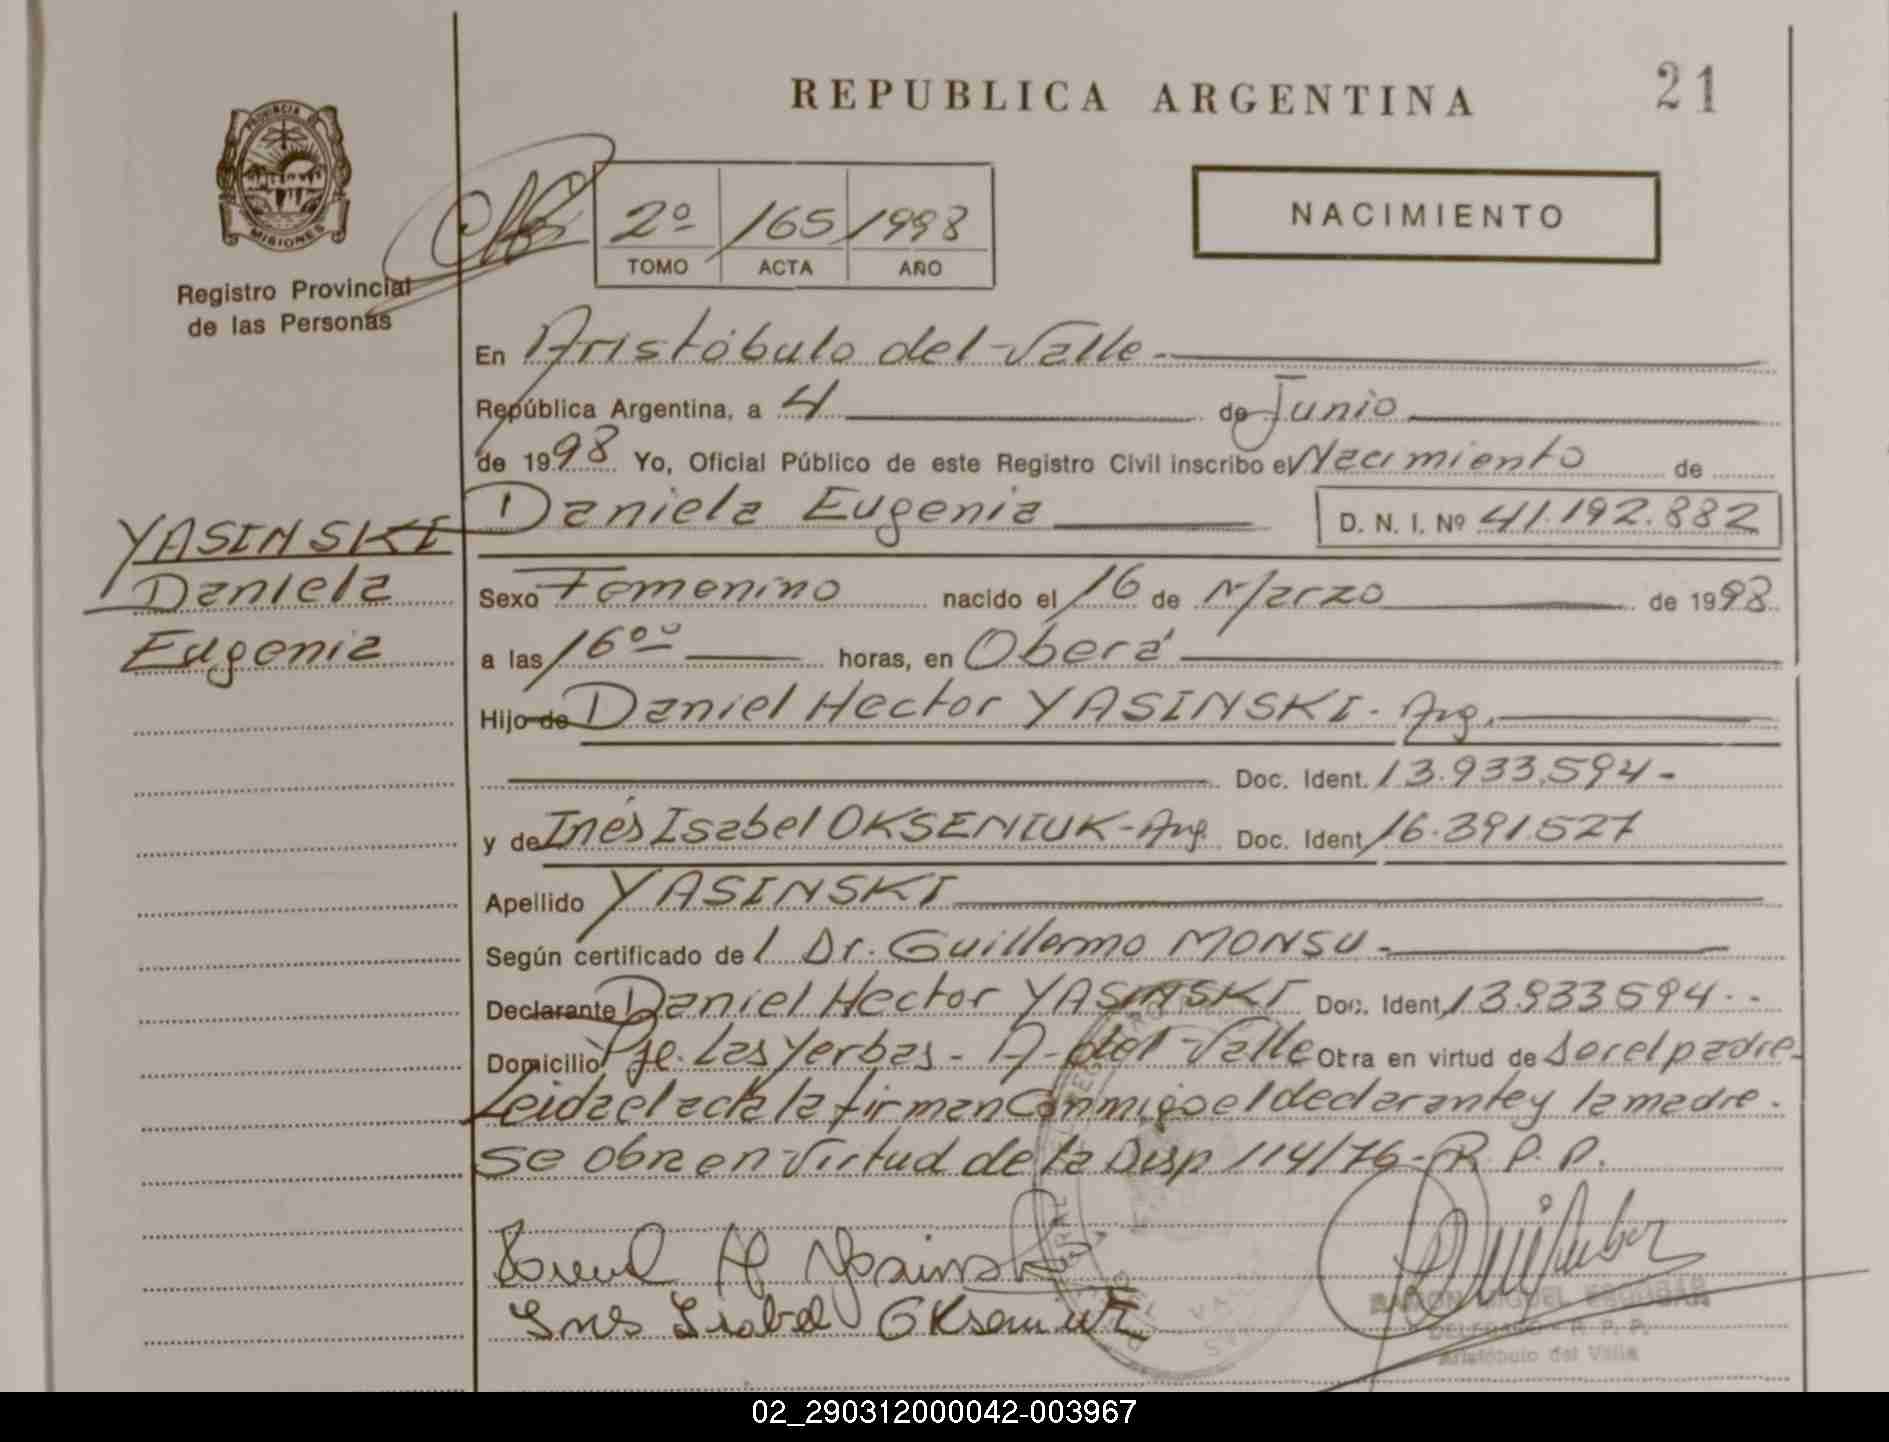 REPUBLICA ARGENTINA
21
PROVINCIA DE
MISIONES
Registro Provincial
de las Personas
2º 165 1998
TOMO ACTA AÑO
NACIMIENTO
En Aristóbulo del Valle
República Argentina, a 4 de Junio
de 1998 Yo, Oficial Público de este Registro Civil inscribo el Nacimiento de
Daniela Eugenia D. N. I. Nº 41.192.882
YASINSKI
Daniela
Eugenia
Sexo Femenino nacido el 16 de Marzo de 1998
a las 16ºº horas, en Oberá
Hijo de Daniel Hector YASINSKI - Arg.
Doc. Ident. 13.933.594-
y de Inés Isabel OKSENIUK - Arg. Doc. Ident 16.391.527
Apellido YASINSKI
Según certificado de l Dr. Guillermo MONSU -
Declarante Daniel Hector YASINSKI Doc. Ident 13.933.594--
Domicilio Pje. Las Yerbas - A. del Valle Obra en virtud de ser el padre-
Leida el acta la firman conmigo el declarante y la madre.
se obra en virtud de la Disp 114/76 - R. P. P.
Daniel H Yasinski
Ines Isabel Okseniuk
RAMON MIGUEL ESCOBAR
DELEGADO - R. P. P.
Aristóbulo del Valle
02_290312000042-003967